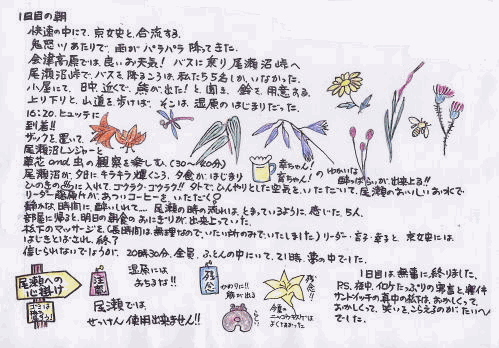 1日目の朝
快速の中にて、京女史と合流する。
鬼怒ツあたりで、雨がパラパラ降ってきた。
会津高原では、良いお天気！バスに乗り尾瀬沼峠へ
尾瀬沼峠で、バスを降るころは、私たち5名しか、いなかった。
小屋にて、日中、近くで、熊が出た！と聞き、鈴を用意する。
上り下りと、山道を歩けば、そこは、湿原のはじまりだった。
16:20.ヒュッテに
到着!!
ザックを置いて、
尾瀬沼レンジャーと
草花and虫の観察を楽しむ、(30〜40分)
尾瀬沼が、夕日にキラキラ輝くころ、夕食が、はじまり
幸ちゃん!
育ちゃん!
のゆかいな
酔っぱらいが、出来上る!!
ひのきのお風呂に入れて、ゴクラク・ゴクラク!! 外で、ひんやりとした空気をいただいて、尾瀬のおいしいお水で、
リーダー
があつ〜いコーヒーを、いれたたく♡
静かな、時間に酔いしれて… 尾瀬の時の流れは、とまっているように、感じた、5人、
部屋に帰ると、明日の朝食のおにぎりが、出来上っていた。
松下のマッサージを、(長時間は、無理なので、いたい所のみでいたしました)
リーダー・育子・幸子と、京女史には、
はじきとばされ、終了
信じられないでしょうが、20時30分、全員、ふとんの中にいて、21時、夢の中でした。
尾瀬への
心掛け
ゴミは
注意
湿原には
おちるな!!
尾瀬では、
せっけん使用出来ません!!
残念
かわりに!!
熊が出る
残念!!
今年の
ニッコウキスゲは
1日目は、無事に、終りました。
P.S. 夜中、イロケたっぷりの寝言と、寝仲
サンドイッチの真中の私では、おかしくって、
おかしくって、笑いを、こらえるのが、たいへん
でした。